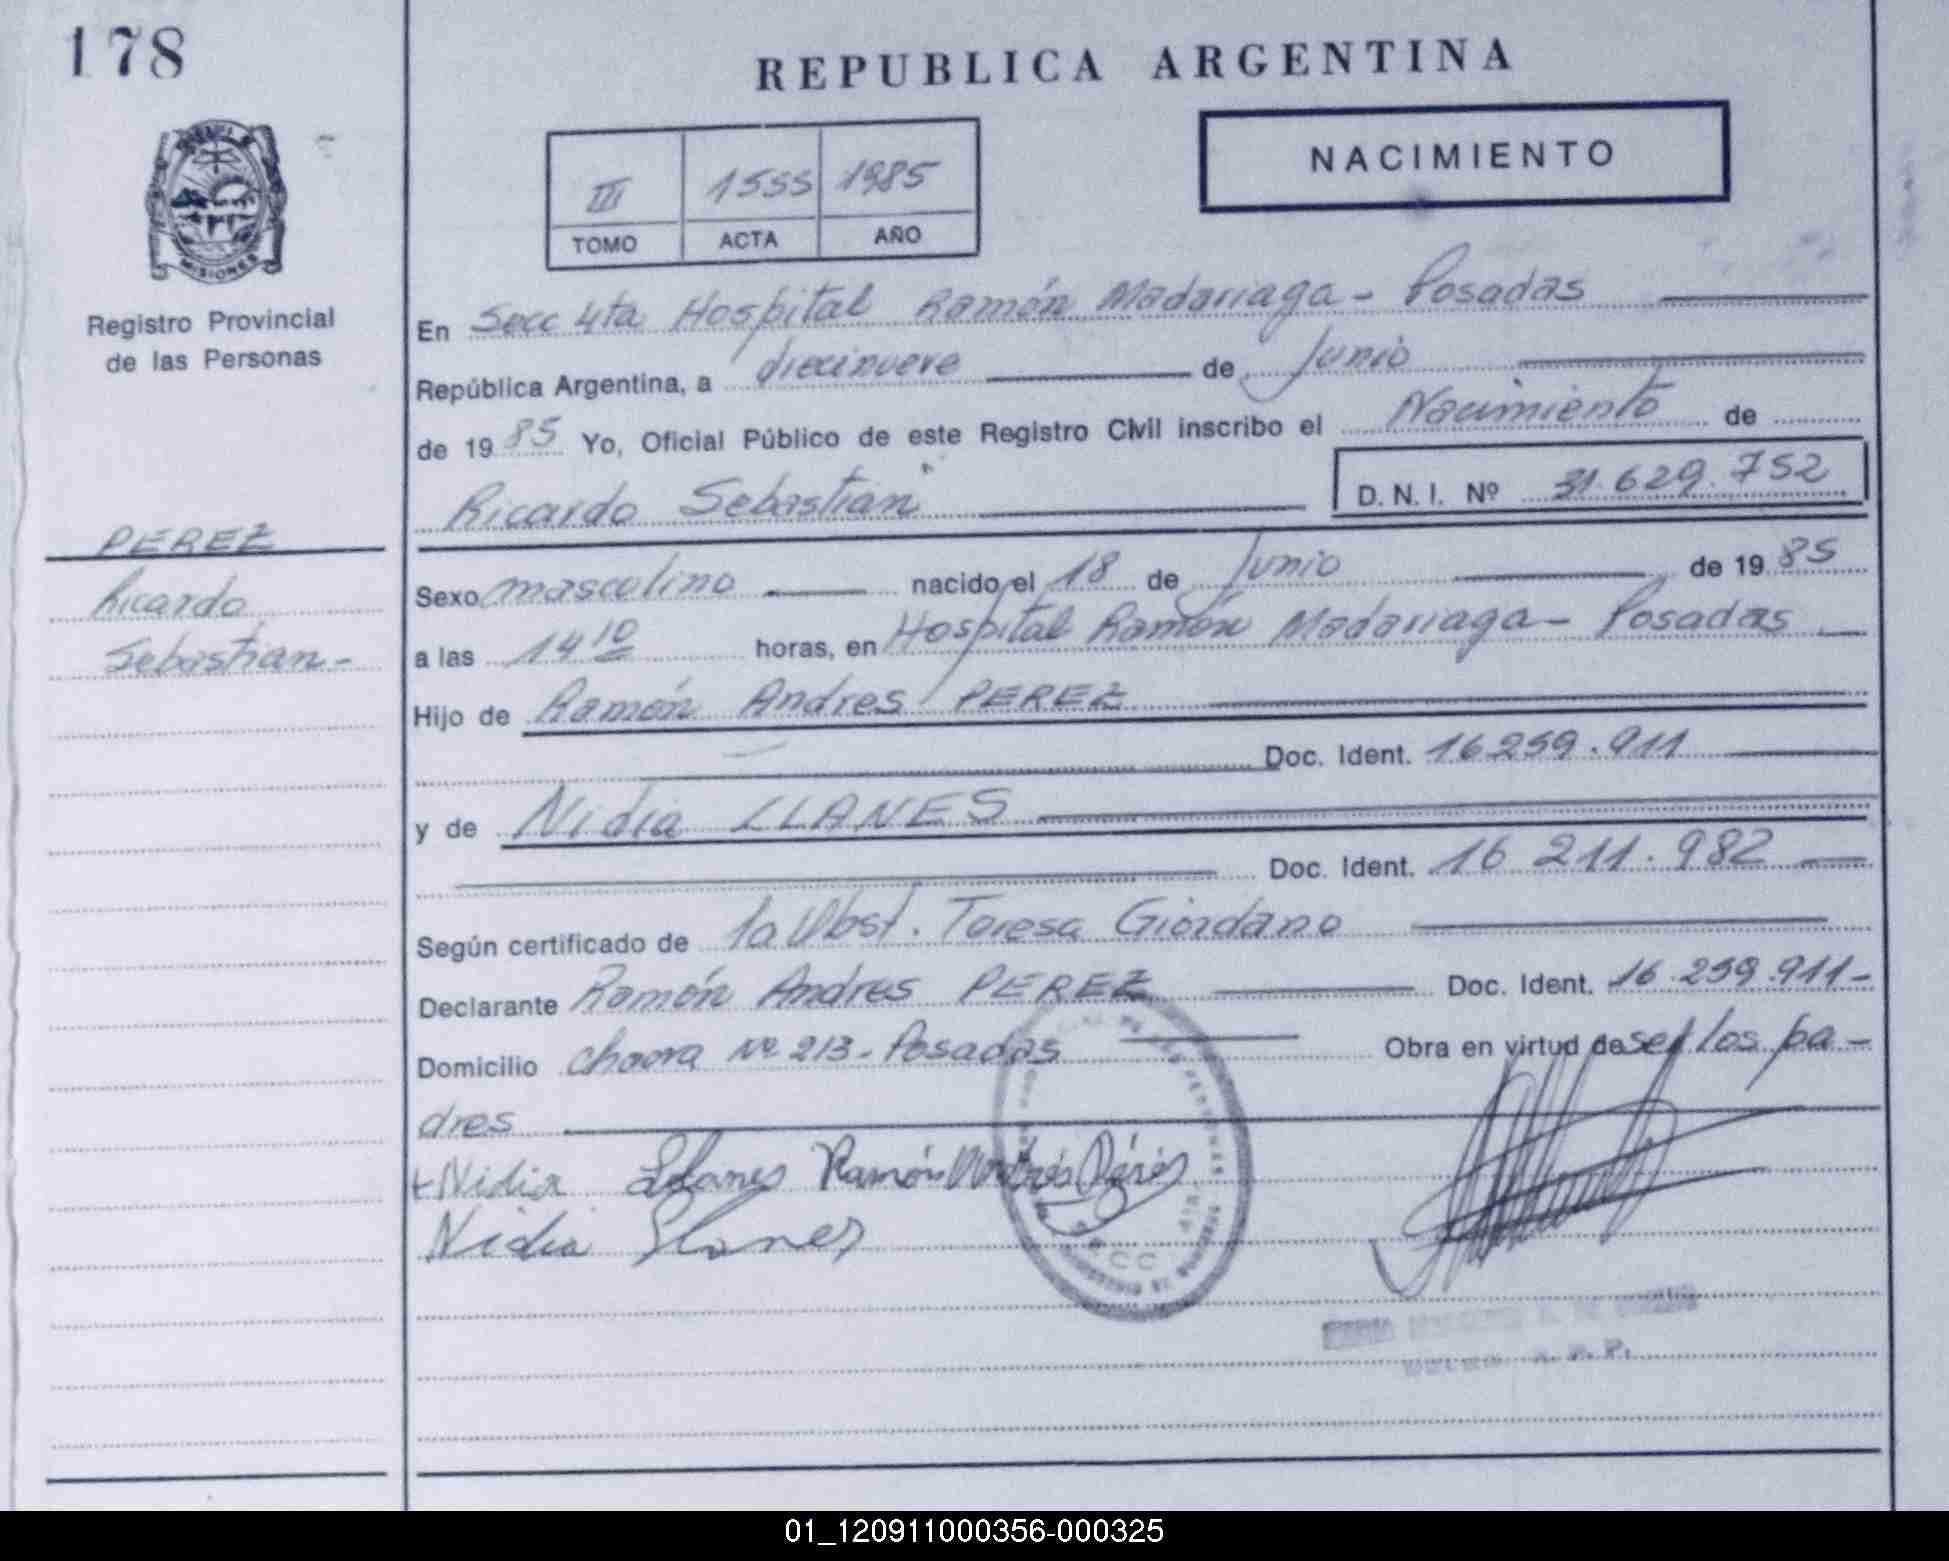 178
REPUBLICA ARGENTINA
NACIMIENTO
III 1555 1985
TOMO ACTA AÑO
MISIONES
Registro Provincial
de las Personas
PEREZ
Ricardo
Sebastian -
En Secc 4ta Hospital Ramón Madariaga - Posadas
República Argentina, a diecinueve de Junio
de 1985 Yo, Oficial Público de este Registro Civil inscribo el Nacimiento de
Ricardo Sebastian D. N. I. Nº 31.629.752
Sexo masculino nacido el 18 de Junio de 1985
a las 14 10 horas, en Hospital Ramón Madariaga - Posadas
Hijo de Ramón Andres PEREZ
Doc. Ident. 16259.911
y de Nidia LLANES
Doc. Ident. 16 211.982
Según certificado de la Obst. Teresa Giordano
Declarante Ramón Andres PEREZ Doc. Ident. 16.259.911-
Domicilio chacra Nº 213 - Posadas Obra en virtud de ser los pa-
dres
Nidia Llanes Ramón Andrés Pérés
Nidia Llanes
01_120911000356-000325